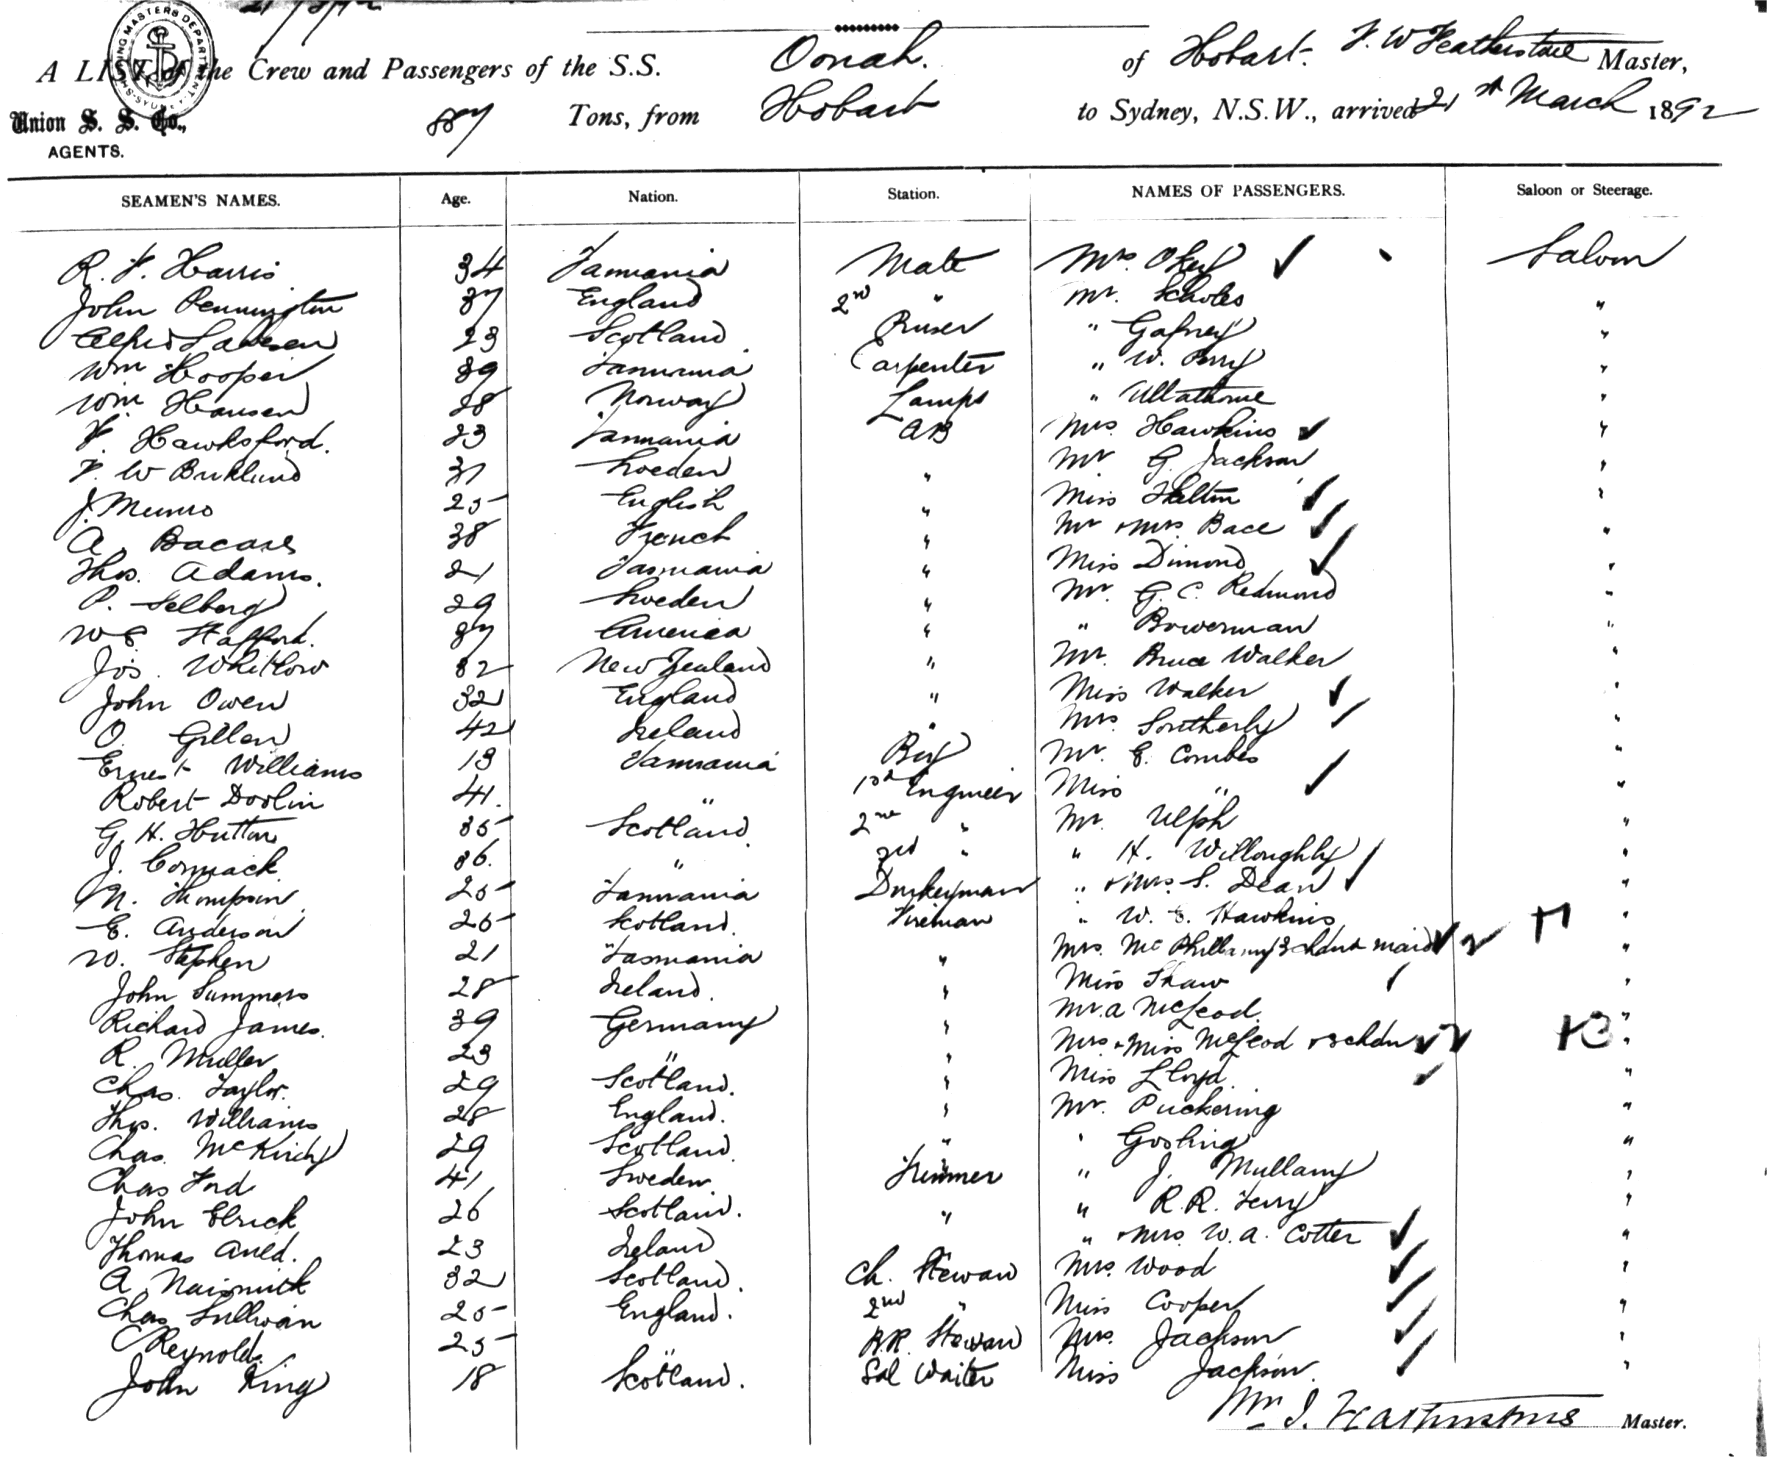 21/3/92
SHIPPING MASTERS DEPARTMENT SYDNEY
A LIST of the Crew and Passengers of the S.S. Oonah. of Hobart. F. W Featherstone Master,
Union S. S. Co., AGENTS. 887 Tons, from Hobart to Sydney, N.S.W., arrived 21st March 1892
SEAMEN'S NAMES. Age. Nation. Station. NAMES OF PASSENGERS. Saloon or Steerage.
R. F. Harris 34 Tasmania Mate Mrs. Okey Saloon
John Pennington 37 England 2nd " Mr. Scholes "
Alfred 23 Scotland Purser " Gafney "
Wm Hooper 39 Tasmania Carpenter " W. Perry "
Wm. Hansen 28 Norway Lamps " Ullathorne "
F. Hawksford. 23 Tasmania AB Mrs. Hawkins "
F. W 37 Sweden " Mr G. Jackson "
J. Munro 25 English " Miss "
A. 38 French " Mr & Mrs. Bace "
Thos. Adams. 21 Tasmania " Miss Dimond "
P. Selberg 29 Sweden " Mr. G. C. Redmond "
W E Stafford. 37 America " " Bowerman "
Jos. Whitlow 32 New Zealand " Mr. Bruce Walker "
John Owen 32 England " Miss Walker "
O. Gillen 42 Ireland " Mrs. Southerly "
Ernest Williams 13 Tasmania Boy Mr. E. Combes "
Robert Doolin 41. " 1st Engineer Miss " "
G. H. Hutton 35 Scotland 2nd " Mr. Ulph "
J. Cormack 36. " 3rd " " H. Willoughby "
M. Thompson 25 Tasmania Donkeyman " & Mrs. S. Dean "
E. Anderson 25 Scotland. Fireman " W. E. Hawkins "
W. Stephen 21 Tasmania " Mrs. McPhillamy 3 chdn & maid "
John Summers 28 Ireland. " Miss Shaw "
Richard James. 39 Germany " Mr. A McLeod. "
R. Muller 23 " " Mrs. & Miss McLeod & 3 chdn "
Chas. Taylor. 29 Scotland. " Miss Lloyd. "
Thos. Williams 28 England. " Mr. Puckering "
Chas. McKirdy 29 Scotland " " Gosling "
Chas Ford 41 Sweden Trimmer " J. Mullamy "
John Elrick 26 Scotland. " " R. R. Terry "
Thomas Auld. 23 Ireland " & Mrs. W. A. Cotter "
A. Naismith 32 Scotland. Ch. Steward Mrs. Wood "
Chas Sullivan 25 England. 2nd " Miss Cooper "
C Reynolds. 25 " B.R. Steward Mrs. Jackson "
John King 18 Scotland. Sal Waiter Miss Jackson. "
Master.